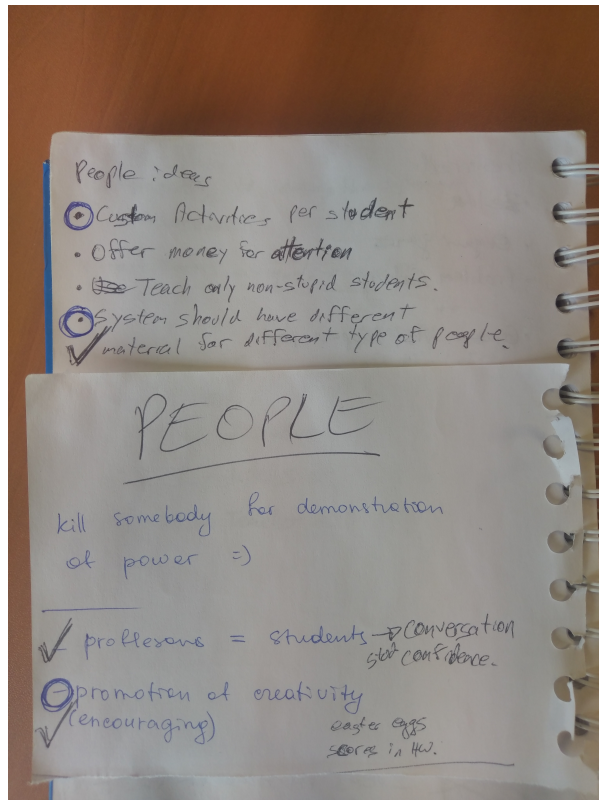 People ideas
• Custom Activities per student
• Offer money for attention
• Teach only non-stupid students.
• System should have different
material for different type of people.
PEOPLE
kill somebody for demonstration
of power =)
- proffesors = students → conversation
confidence.
- promotion of creativity
(encouraging)
easter eggs
scores in HW.